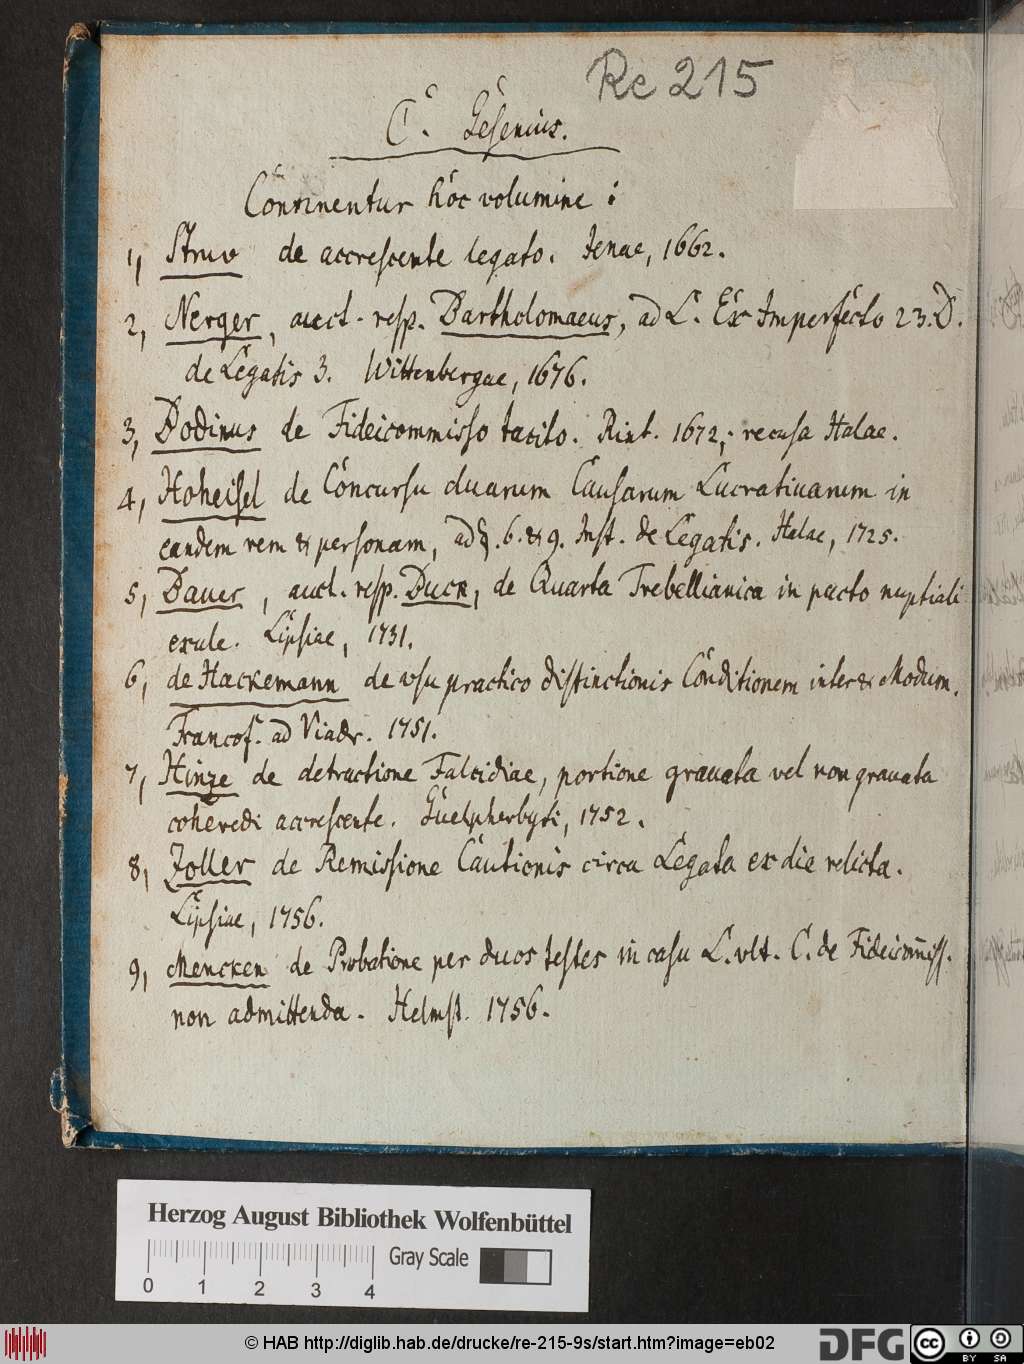 Re 215
C. Gesenius.
Continentur hoc volumine :
1, Struv de accrescente legato. Jenae, 1662.
2, Nerger, auct. resp. Bartholomaeus, ad L. Ex Imperfecto 23. D.
de Legatis 3. Wittenbergae, 1676.
3, Dodinus de Fideicommisso tacito. Rint. 1672, recusa Halae.
4, Hoheisel de Concursu duarum Causarum Lucrativarum in
eandem rem & personam, ad §. 6. & 9. Inst. de Legatis. Halae, 1725.
5, Bauer, auct. resp. Duck, de Quarta Trebellianica in pacto nuptiali
exule. Lipsiae, 1731.
6, de Hackemann de usu practico distinctionis Conditionem inter & Modum.
Francof. ad Viadr. 1751.
7, Hinze de detractione Falcidiae, portione gravata vel non gravata
coheredi accrescente. Guelpherbyti, 1752.
8, Zoller de Remissione Cautionis circa Legata ex die relicta.
Lipsiae, 1756.
9, Mencken de Probatione per duos testes in casu L. ult. C. de Fideicom̄iss.
non admittenda. Helmst. 1756.
Herzog August Bibliothek Wolfenbüttel
Gray Scale
0 1 2 3 4
© HAB http://diglib.hab.de/drucke/re-215-9s/start.htm?image=eb02
DFG
cc BY SA